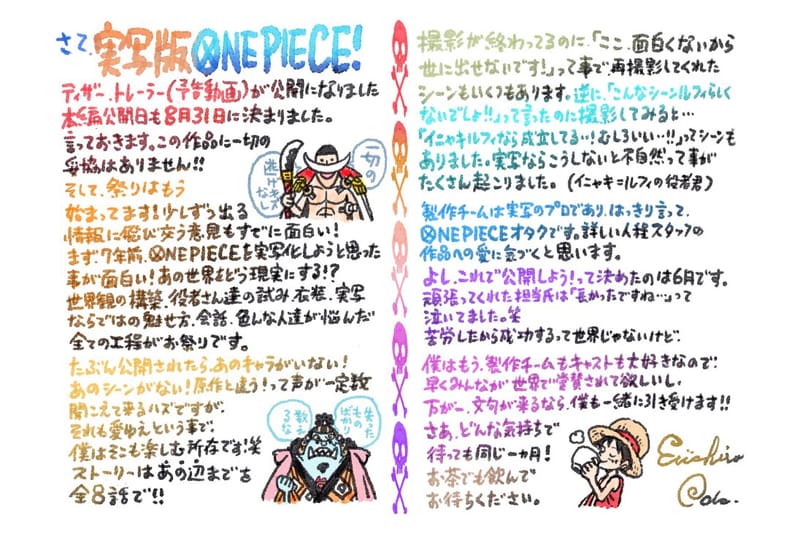 さて、実写版ONE PIECE!
ティザー、トレーラー(予告動画)が公開になりました
本編公開日も8月31日に決まりました。
言っておきます。この作品に一切の
妥協はありません!!
一切の
逃げキズ
なし
そして、祭りはもう
始まってます!少しずつ出る
情報に飛び交う意見もすでに面白い!
まず、7年前、ONE PIECEを実写化しようと思った
事が面白い!あの世界をどう現実にする!?
世界観の構築、役者さん達の試み、衣装、実写
ならではの魅せ方、会話、色んな人達が悩んだ
全ての工程がお祭りです。
たぶん公開されたら、あのキャラがいない!
あのシーンがない!原作と違う!って声が一定数
聞こえて来るハズですが、
それも愛ゆえという事で、
僕はそこも楽しむ所存です!笑
ストーリーはあの辺までを
全8話で!!
失った
ものばかり
数え
るな
撮影が終わってるのに、「ここ、面白くないから
世に出せないです!」って事で再撮影してくれた
シーンもいくつもあります。逆に、「こんなシーンルフィらしく
ないでしょ!!」って言ったのに撮影してみると…
「イニャキルフィなら成立してる…!むしろいい…!!」ってシーンも
ありました。実写ならこうしないと不自然って事が
たくさん起こりました。(イニャキ=ルフィの役者君)
製作チームは実写のプロであり、はっきり言って、
ONE PIECEオタクです。詳しい人程スタッフの
作品への愛に気づくと思います。
よし、これで公開しよう!って決めたのは6月です。
頑張ってくれた担当氏は「長かったですね…」って
泣いてました。笑
苦労したから成功するって世界じゃないけど、
僕はもう、製作チームもキャストも大好きなので、
早くみんなが世界で賞賛されて欲しいし、
万が一、文句が来るなら、僕も一緒に引き受けます!!
さあ、どんな気持ちで
待っても同じ一ヵ月!
お茶でも飲んで
お待ちください。
Eiichiro
Oda.